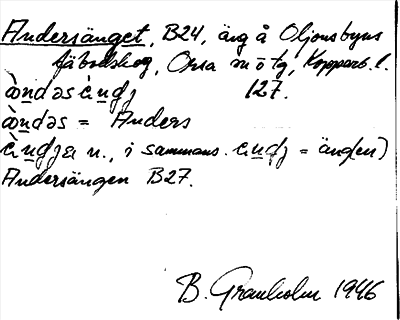 Andersänget, B24, äng å Oljonsbyns
fäbodskog, Orsa s:n o tg, Kopparb. l.
àndəs ὲndʒ 127.
àndəs = Anders
ὲndʒɛ n., i sammans. ɛndʒ = äng(en)
Andersängen B27.
B. Granholm 1946